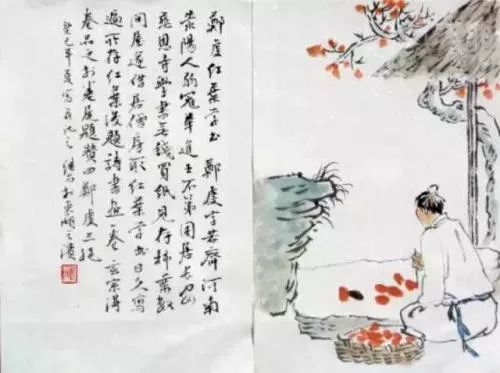 鄭虔紅葉學書 鄭虔字若齊河南
滎陽人弱冠舉進士不第困居長安
慈恩寺學書無錢買紙見存柿葉數
間屋遂借居僧房取紅葉學書日久寫
遍所存紅葉後題詩書畫一卷玄宗得
卷品之於卷尾題贊曰鄭虔三絕
癸巳年夏寫